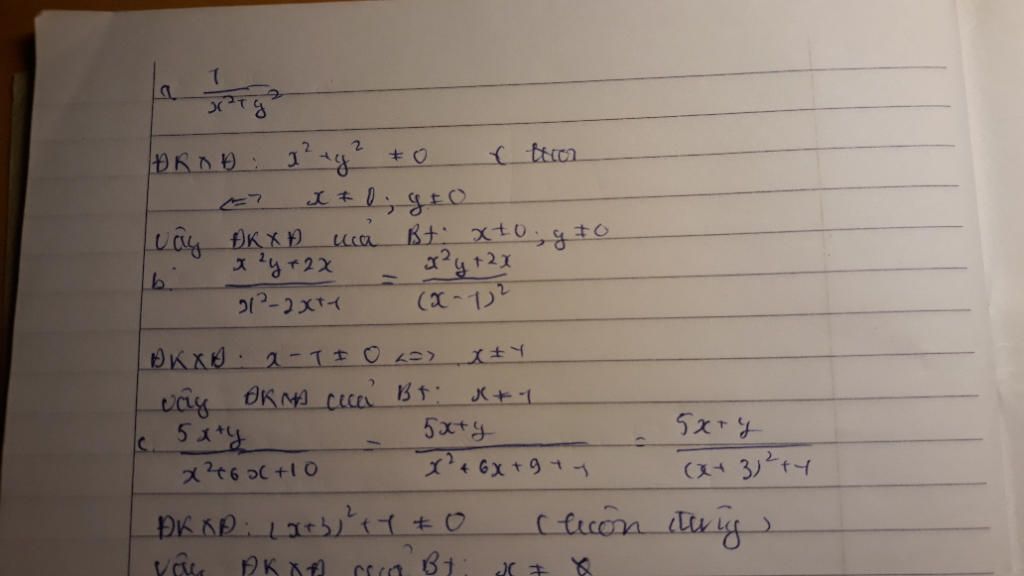 a 1/(x²+y²)
ĐKXĐ: x²+y² ≠ 0 (
<=> x ≠ 0; y ≠ 0
Vậy ĐKXĐ của Bt: x≠0; y≠0
b. (x²y+2x)/(x²-2x+1) = (x²y+2x)/(x-1)²
ĐKXĐ: x-1 ≠ 0 <=> x ≠ 1
Vậy ĐKXĐ của Bt: x ≠ 1
c. (5x+y)/(x²+6x+10) = (5x+y)/(x²+6x+9+1) = (5x+y)/((x+3)²+1)
ĐKXĐ: (x+3)²+1 ≠ 0 (luôn đúng)
Vậy ĐKXĐ của Bt: x ≠